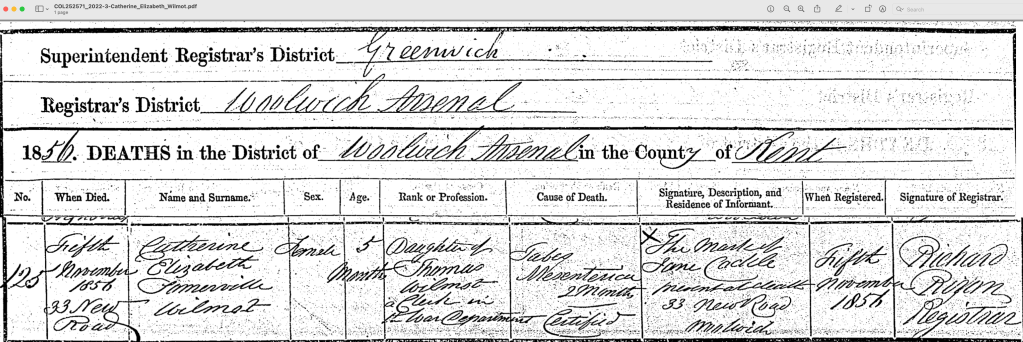 COL252571_2022-3-Catherine_Elizabeth_Wilmot.pdf
1 page
Search
Superintendent Registrar's District Greenwich
Registrar's District Woolwich Arsenal
1856. DEATHS in the District of Woolwich Arsenal in the County of Kent
No. When Died. Name and Surname. Sex. Age. Rank or Profession. Cause of Death. Signature, Description, and Residence of Informant. When Registered. Signature of Registrar.
125
Fifth
November
1856
33 New
Road
Catherine
Elizabeth
Somerville
Wilmot
Female
5
Months
Daughter of
Thomas
Wilmot
a Clerk in
War Department
Tabes
Mesenterica
2 Months
Certified
X The mark of
Jane Caddle
present at death
33 New Road
Woolwich
Fifth
November
1856
Richard
Rixon
Registrar